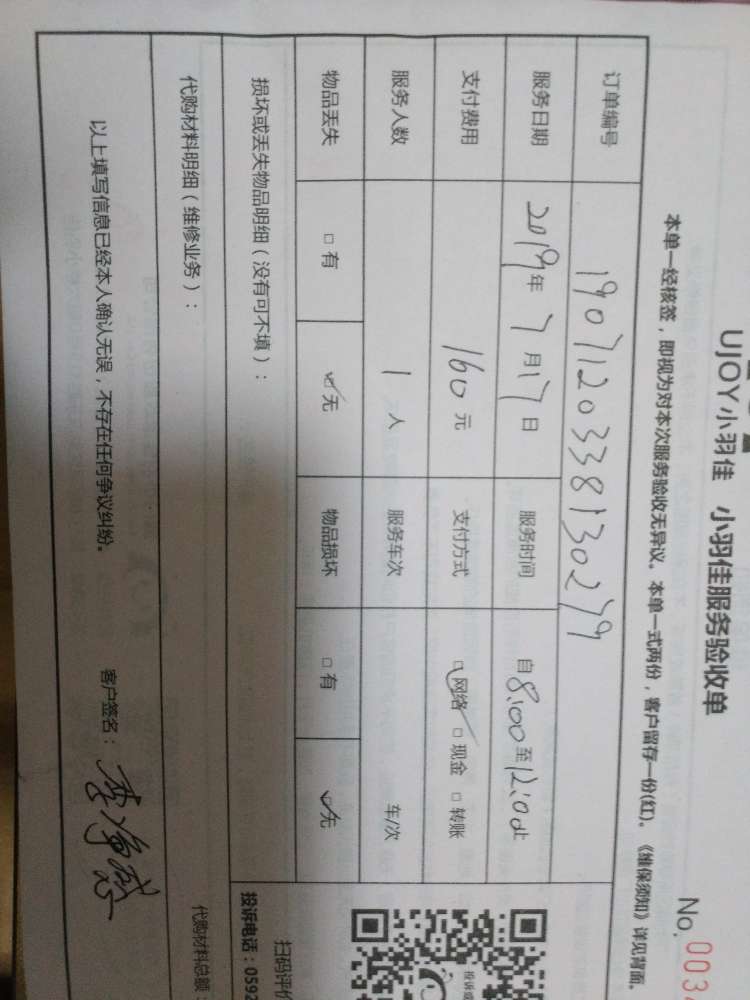 UJOY小羽佳 小羽佳服务验收单
No. 003
本单一经核签,即视为对本次服务验收无异议。本单一式两份,客户留存一份(红)。《维保须知》详见背面。
订单编号 1907120338130279
服务日期 2019年7月17日 服务时间 自8:00至12:00止
支付费用 160元 支付方式 ☑网络 □现金 □转账
服务人数 1人 服务车次 车/次
物品丢失 □有 ☑无 物品损坏 □有 ☑无
损坏或丢失物品明细(没有可不填):
扫码评价
投诉电话:0592
代购材料明细(维修业务): 代购材料总额
以上填写信息已经本人确认无误,不存在任何争议纠纷。 客户签名: